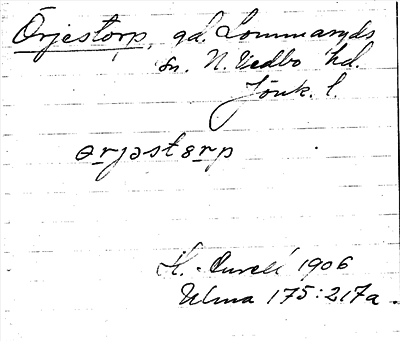 Örjestorp, gd. Lommaryds
sn. N. Vedbo hd.
Jönk. l.
ørjəstørp
H. Curell 1906
Ulma 175:217a.